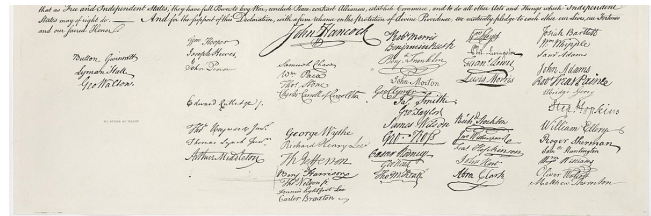 that as Free and Independent States, they have full Power to levy War, conclude Peace, contract Alliances, establish Commerce, and to do all other Acts and Things which Independent
States may of right do. And for the support of this Declaration, with a firm reliance on the Protection of divine Providence, we mutually pledge to each other our Lives, our Fortunes
and our sacred Honor.
John Hancock
Button Gwinnett
Lyman Hall
Geo Walton.
Wm Hooper
Joseph Hewes,
John Penn
Edward Rutledge
Thos Heyward Junr
Thomas Lynch Junr
Arthur Middleton
Samuel Chase
Wm Paca
Thos Stone
Charles Carroll of Carrollton
George Wythe
Richard Henry Lee
Th Jefferson
Benj Harrison
Thos Nelson jr
Francis Lightfoot Lee
Carter Braxton
Robt Morris
Benjamin Rush
Benj Franklin
John Morton
Geo Clymer
Jas Smith
Geo Taylor
James Wilson
Geo Ross
Caesar Rodney
Geo Read
Tho M:Kean
Wm Floyd
Phil Livingston
Frans Lewis
Lewis Morris
Richd Stockton
Jno Witherspoon
Fras Hopkinson
John Hart
Abra Clark
Josiah Bartlett
Wm Whipple
Saml Adams
John Adams
Robt Treat Paine
Elbridge Gerry
Step Hopkins
William Ellery
Roger Sherman
Sam Huntington
Wm Williams
Oliver Wolcott
Matthew Thornton